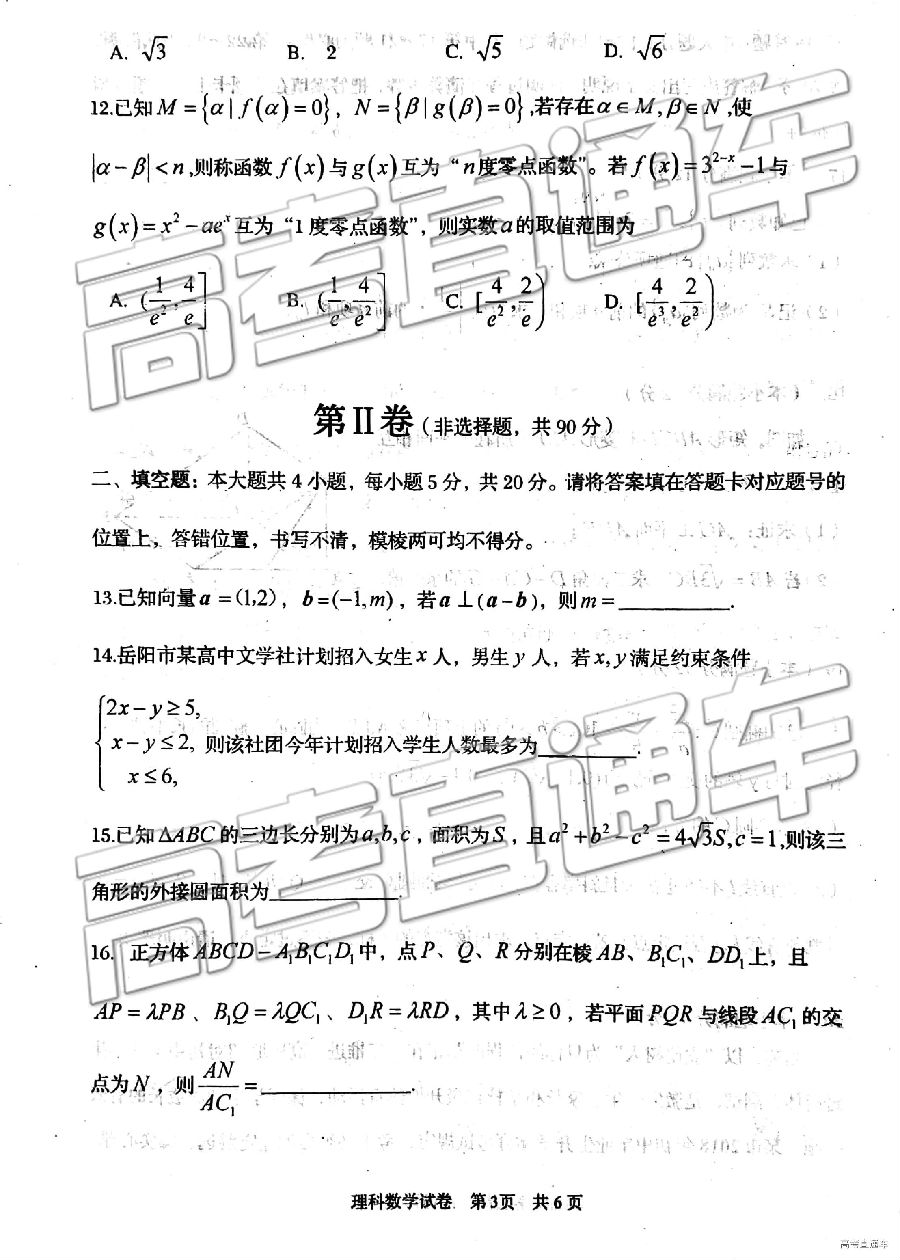 A. √3 B. 2 C. √5 D. √6
12.已知M={α|f(α)=0}，N={β|g(β)=0},若存在α∈M,β∈N,使
|α−β|<n,则称函数f(x)与g(x)互为“n度零点函数”。若f(x)=3^{2−x}−1与
g(x)=x²−ae^x互为“1度零点函数”，则实数a的取值范围为
A. (1/e²,4/e] B. (1/e,4/e²] C. [4/e²,2/e) D. [4/e³,2/e²)
第Ⅱ卷（非选择题，共90分）
二、填空题：本大题共4小题，每小题5分，共20分。请将答案填在答题卡对应题号的
位置上，答错位置，书写不清，模棱两可均不得分。
13.已知向量a=(1,2)，b=(−1,m)，若a⊥(a−b)，则m=________.
14.岳阳市某高中文学社计划招入女生x人，男生y人，若x,y满足约束条件
{2x−y≥5,
x−y≤2, 则该社团今年计划招入学生人数最多为________.
x≤6,
15.已知ΔABC的三边长分别为a,b,c，面积为S，且a²+b²−c²=4√3S,c=1,则该三
角形的外接圆面积为________.
16. 正方体ABCD−A₁B₁C₁D₁中，点P、Q、R分别在棱AB、B₁C₁、DD₁上，且
AP=λPB、B₁Q=λQC₁、D₁R=λRD，其中λ≥0，若平面PQR与线段AC₁的交
点为N，则AN/AC₁=________.
理科数学试卷 第3页 共6页
高考直通车
高考直通车
高考直通车